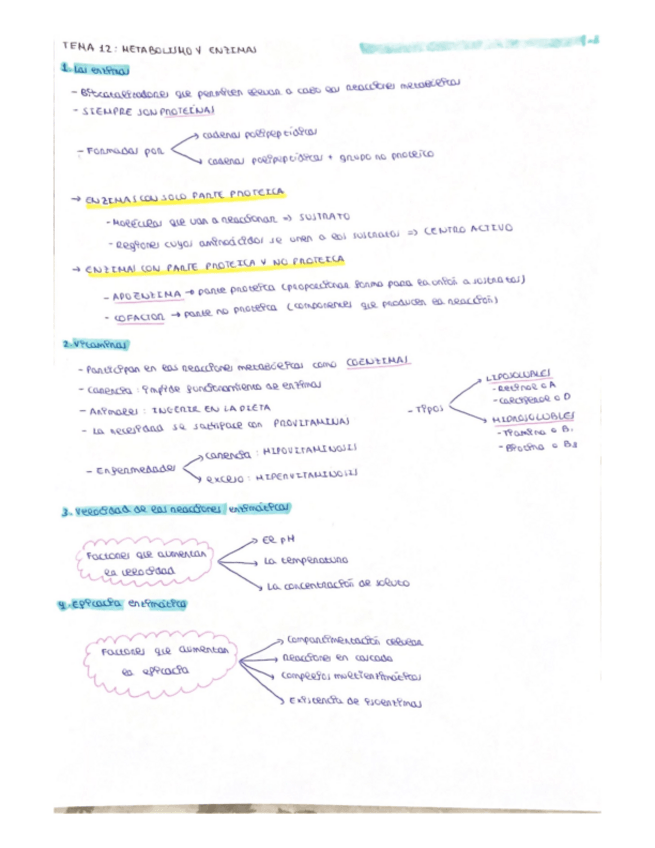 TEMA 12: METABOLISMO Y ENZIMAS
1. Las enzimas
- Biocatalizadores que permiten llevar a cabo las reacciones metabólicas
- SIEMPRE SON PROTEÍNAS
- Formadas por
cadenas polipeptídicas
cadenas polipeptídicas + grupo no proteico
→ ENZIMAS CON SOLO PARTE PROTEICA
- Moléculas que van a reaccionar => SUSTRATO
- Regiones cuyos aminoácidos se unen a los sustratos => CENTRO ACTIVO
→ ENZIMAS CON PARTE PROTEICA Y NO PROTEICA
- APOENZIMA → parte proteica (proporcionar forma para la unión a sustratos)
- COFACTOR → parte no proteica (componentes que producen la reacción)
2. Vitaminas
- Participan en las reacciones metabólicas como COENZIMAS
- Carencia: impide funcionamiento de enzimas
- Animales: INGERIR EN LA DIETA
- La necesidad se satisface con PROVITAMINAS
- Enfermedades
carencia: HIPOVITAMINOSIS
exceso: HIPERVITAMINOSIS
- Tipos
LIPOSOLUBLES
- Retinol o A
- Calciferol o D
HIDROSOLUBLES
- Tiamina o B₁
- Biotina o B₈
3. Velocidad de las reacciones enzimáticas
Factores que aumentan
la velocidad
El pH
La temperatura
La concentración de soluto
4. Eficacia enzimática
Factores que aumentan
la eficacia
Compartimentación celular
Reacciones en cascada
Complejos multienzimáticos
Existencia de isoenzimas